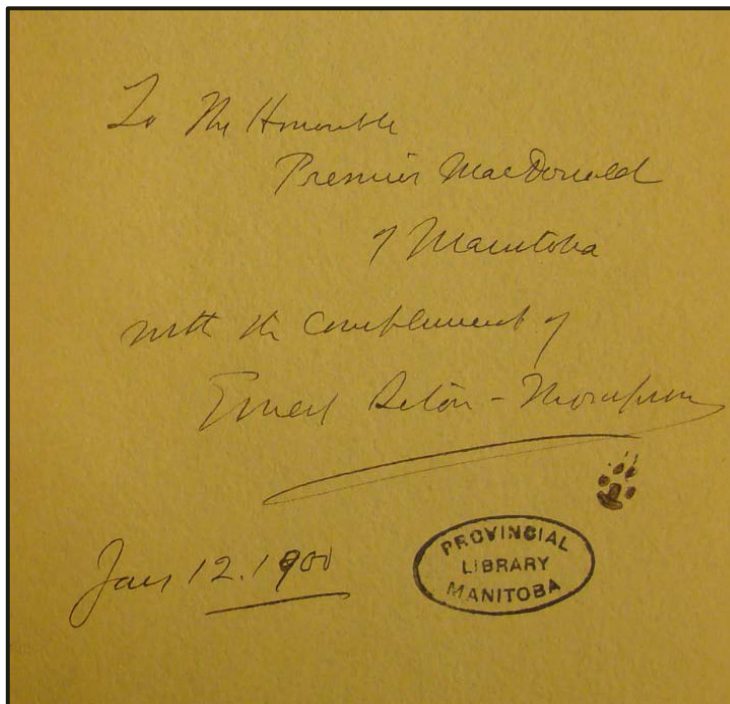 To The Honourable
Premier MacDonald
of Manitoba
with the compliments of
Ernest Seton-Thompson
Jan 12. 1900
PROVINCIAL
LIBRARY
MANITOBA